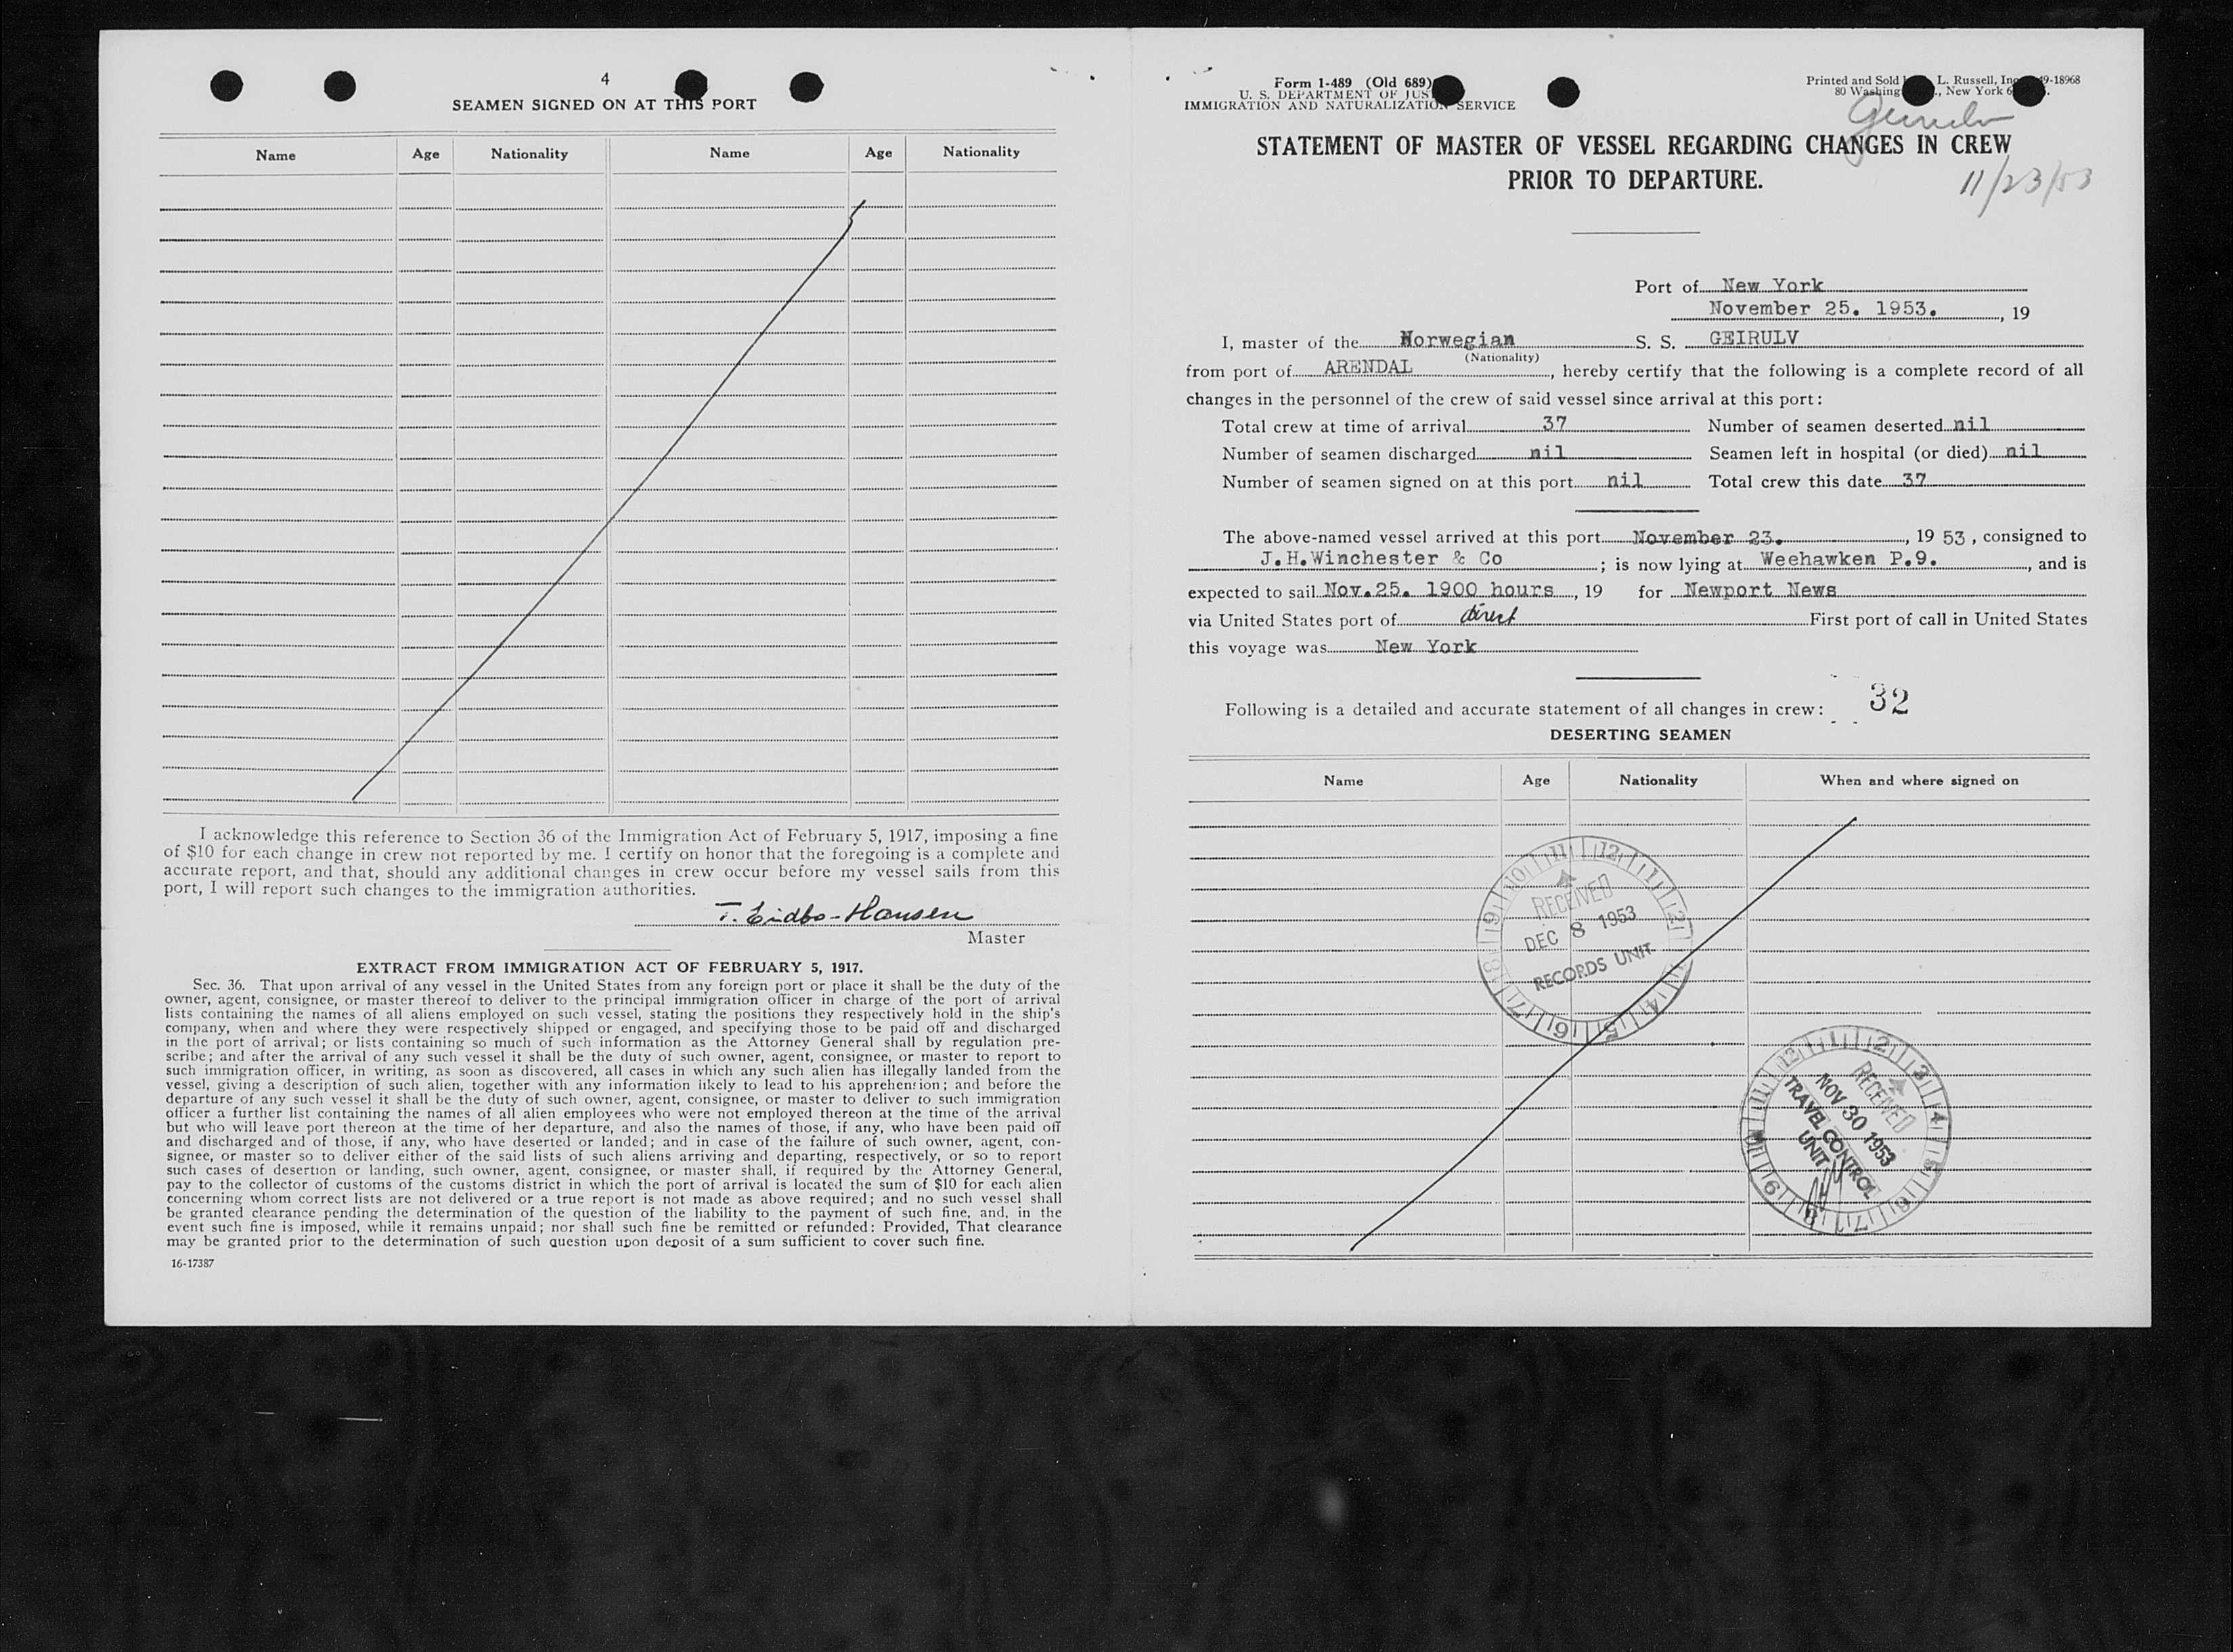 4
SEAMEN SIGNED ON AT THIS PORT
Name Age Nationality Name Age Nationality
I acknowledge this reference to Section 36 of the Immigration Act of February 5, 1917, imposing a fine
of $10 for each change in crew not reported by me. I certify on honor that the foregoing is a complete and
accurate report, and that, should any additional changes in crew occur before my vessel sails from this
port, I will report such changes to the immigration authorities.
T. Eidbo-Hansen
Master
EXTRACT FROM IMMIGRATION ACT OF FEBRUARY 5, 1917.
Sec. 36. That upon arrival of any vessel in the United States from any foreign port or place it shall be the duty of the
owner, agent, consignee, or master thereof to deliver to the principal immigration officer in charge of the port of arrival
lists containing the names of all aliens employed on such vessel, stating the positions they respectively hold in the ship's
company, when and where they were respectively shipped or engaged, and specifying those to be paid off and discharged
in the port of arrival; or lists containing so much of such information as the Attorney General shall by regulation pre-
scribe; and after the arrival of any such vessel it shall be the duty of such owner, agent, consignee, or master to report to
such immigration officer, in writing, as soon as discovered, all cases in which any such alien has illegally landed from the
vessel, giving a description of such alien, together with any information likely to lead to his apprehension; and before the
departure of any such vessel it shall be the duty of such owner, agent, consignee, or master to deliver to such immigration
officer a further list containing the names of all alien employees who were not employed thereon at the time of the arrival
but who will leave port thereon at the time of her departure, and also the names of those, if any, who have been paid off
and discharged and of those, if any, who have deserted or landed; and in case of the failure of such owner, agent, con-
signee, or master so to deliver either of the said lists of such aliens arriving and departing, respectively, or so to report
such cases of desertion or landing, such owner, agent, consignee, or master shall, if required by the Attorney General,
pay to the collector of customs of the customs district in which the port of arrival is located the sum of $10 for each alien
concerning whom correct lists are not delivered or a true report is not made as above required; and no such vessel shall
be granted clearance pending the determination of the question of the liability to the payment of such fine, and, in the
event such fine is imposed, while it remains unpaid; nor shall such fine be remitted or refunded: Provided, That clearance
may be granted prior to the determination of such question upon deposit of a sum sufficient to cover such fine.
16-17387
Form 1-489 (Old 689)
U. S. DEPARTMENT OF JUS
IMMIGRATION AND NATURALIZATION SERVICE
Printed and Sold L. Russell, Inc. 49-18968
80 Washing , New York 6
Geirulv
STATEMENT OF MASTER OF VESSEL REGARDING CHANGES IN CREW
PRIOR TO DEPARTURE.
11/23/53
Port of New York
November 25. 1953. , 19
I, master of the Norwegian S. S. GEIRULV
(Nationality)
from port of ARENDAL , hereby certify that the following is a complete record of all
changes in the personnel of the crew of said vessel since arrival at this port:
Total crew at time of arrival 37 Number of seamen deserted nil
Number of seamen discharged nil Seamen left in hospital (or died) nil
Number of seamen signed on at this port nil Total crew this date 37
The above-named vessel arrived at this port November 23. , 19 53 , consigned to
J.H.Winchester & Co ; is now lying at Weehawken P.9. , and is
expected to sail Nov.25. 1900 hours , 19 for Newport News
via United States port of direct First port of call in United States
this voyage was New York
Following is a detailed and accurate statement of all changes in crew: 32
DESERTING SEAMEN
Name Age Nationality When and where signed on
12 1 2 4 5 6 7 8 9 10 11
RECEIVED
DEC 8 1953
RECORDS UNIT
12 1 2 3 4 5 6 7 8 9 11
RECEIVED
NOV 30 1953
TRAVEL CONTROL
UNIT